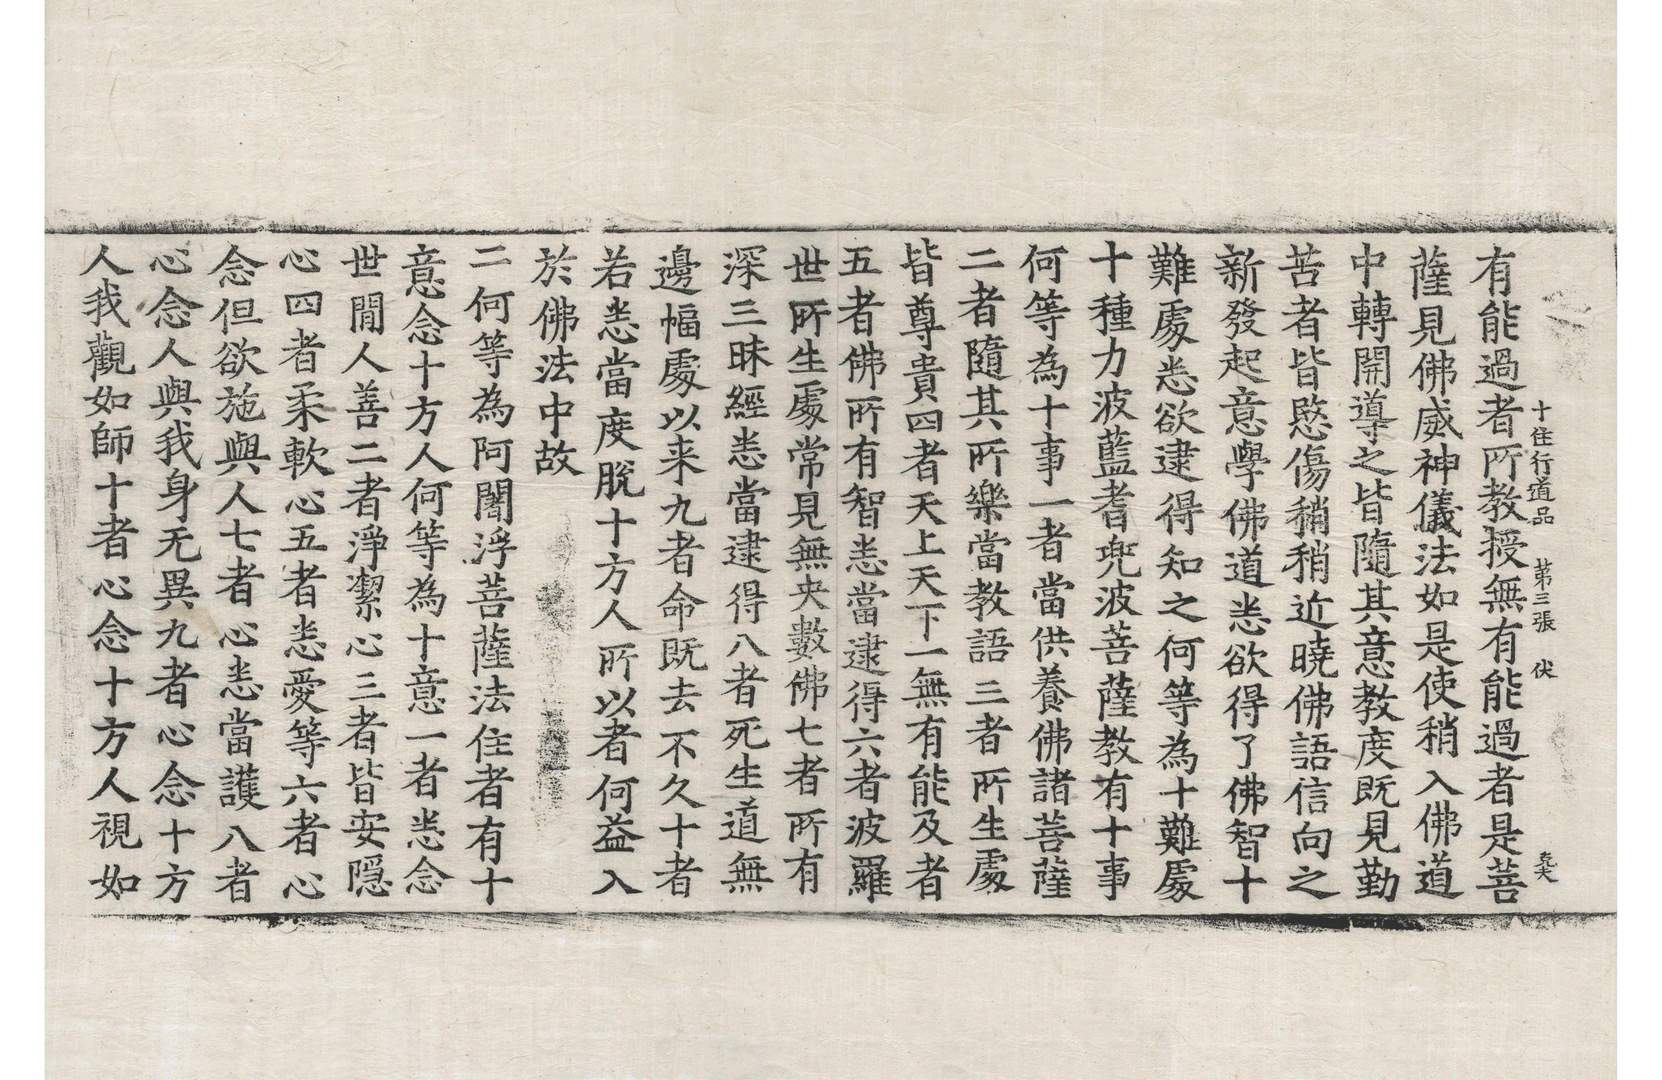 十住行道品　第三張　伏
有能過者所教授無有能過者是菩
薩見佛威神儀法如是使稍入佛道
中轉開導之皆隨其意教度既見勤
苦者皆愍傷稍稍近曉佛語信向之
新發起意學佛道悉欲得了佛智十
難處悉欲逮得知之何等為十難處
十種力波藍耆兜波菩薩教有十事
何等為十事一者當供養佛諸菩薩
二者隨其所樂當教語三者所生處
皆尊貴四者天上天下一無有能及者
五者佛所有智悉當逮得六者波羅
世所生處常見無央數佛七者所有
深三昧經悉當逮得八者死生道無
邊幅處以来九者命既去不久十者
若悉當度脫十方人所以者何益入
於佛法中故
二何等為阿闍浮菩薩法住者有十
意念十方人何等為十意一者悉念
世閒人善二者淨潔心三者皆安隱
心四者柔軟心五者悉愛等六者心
念但欲施與人七者心悉當護八者
心念人與我身无異九者心念十方
人我觀如師十者心念十方人視如